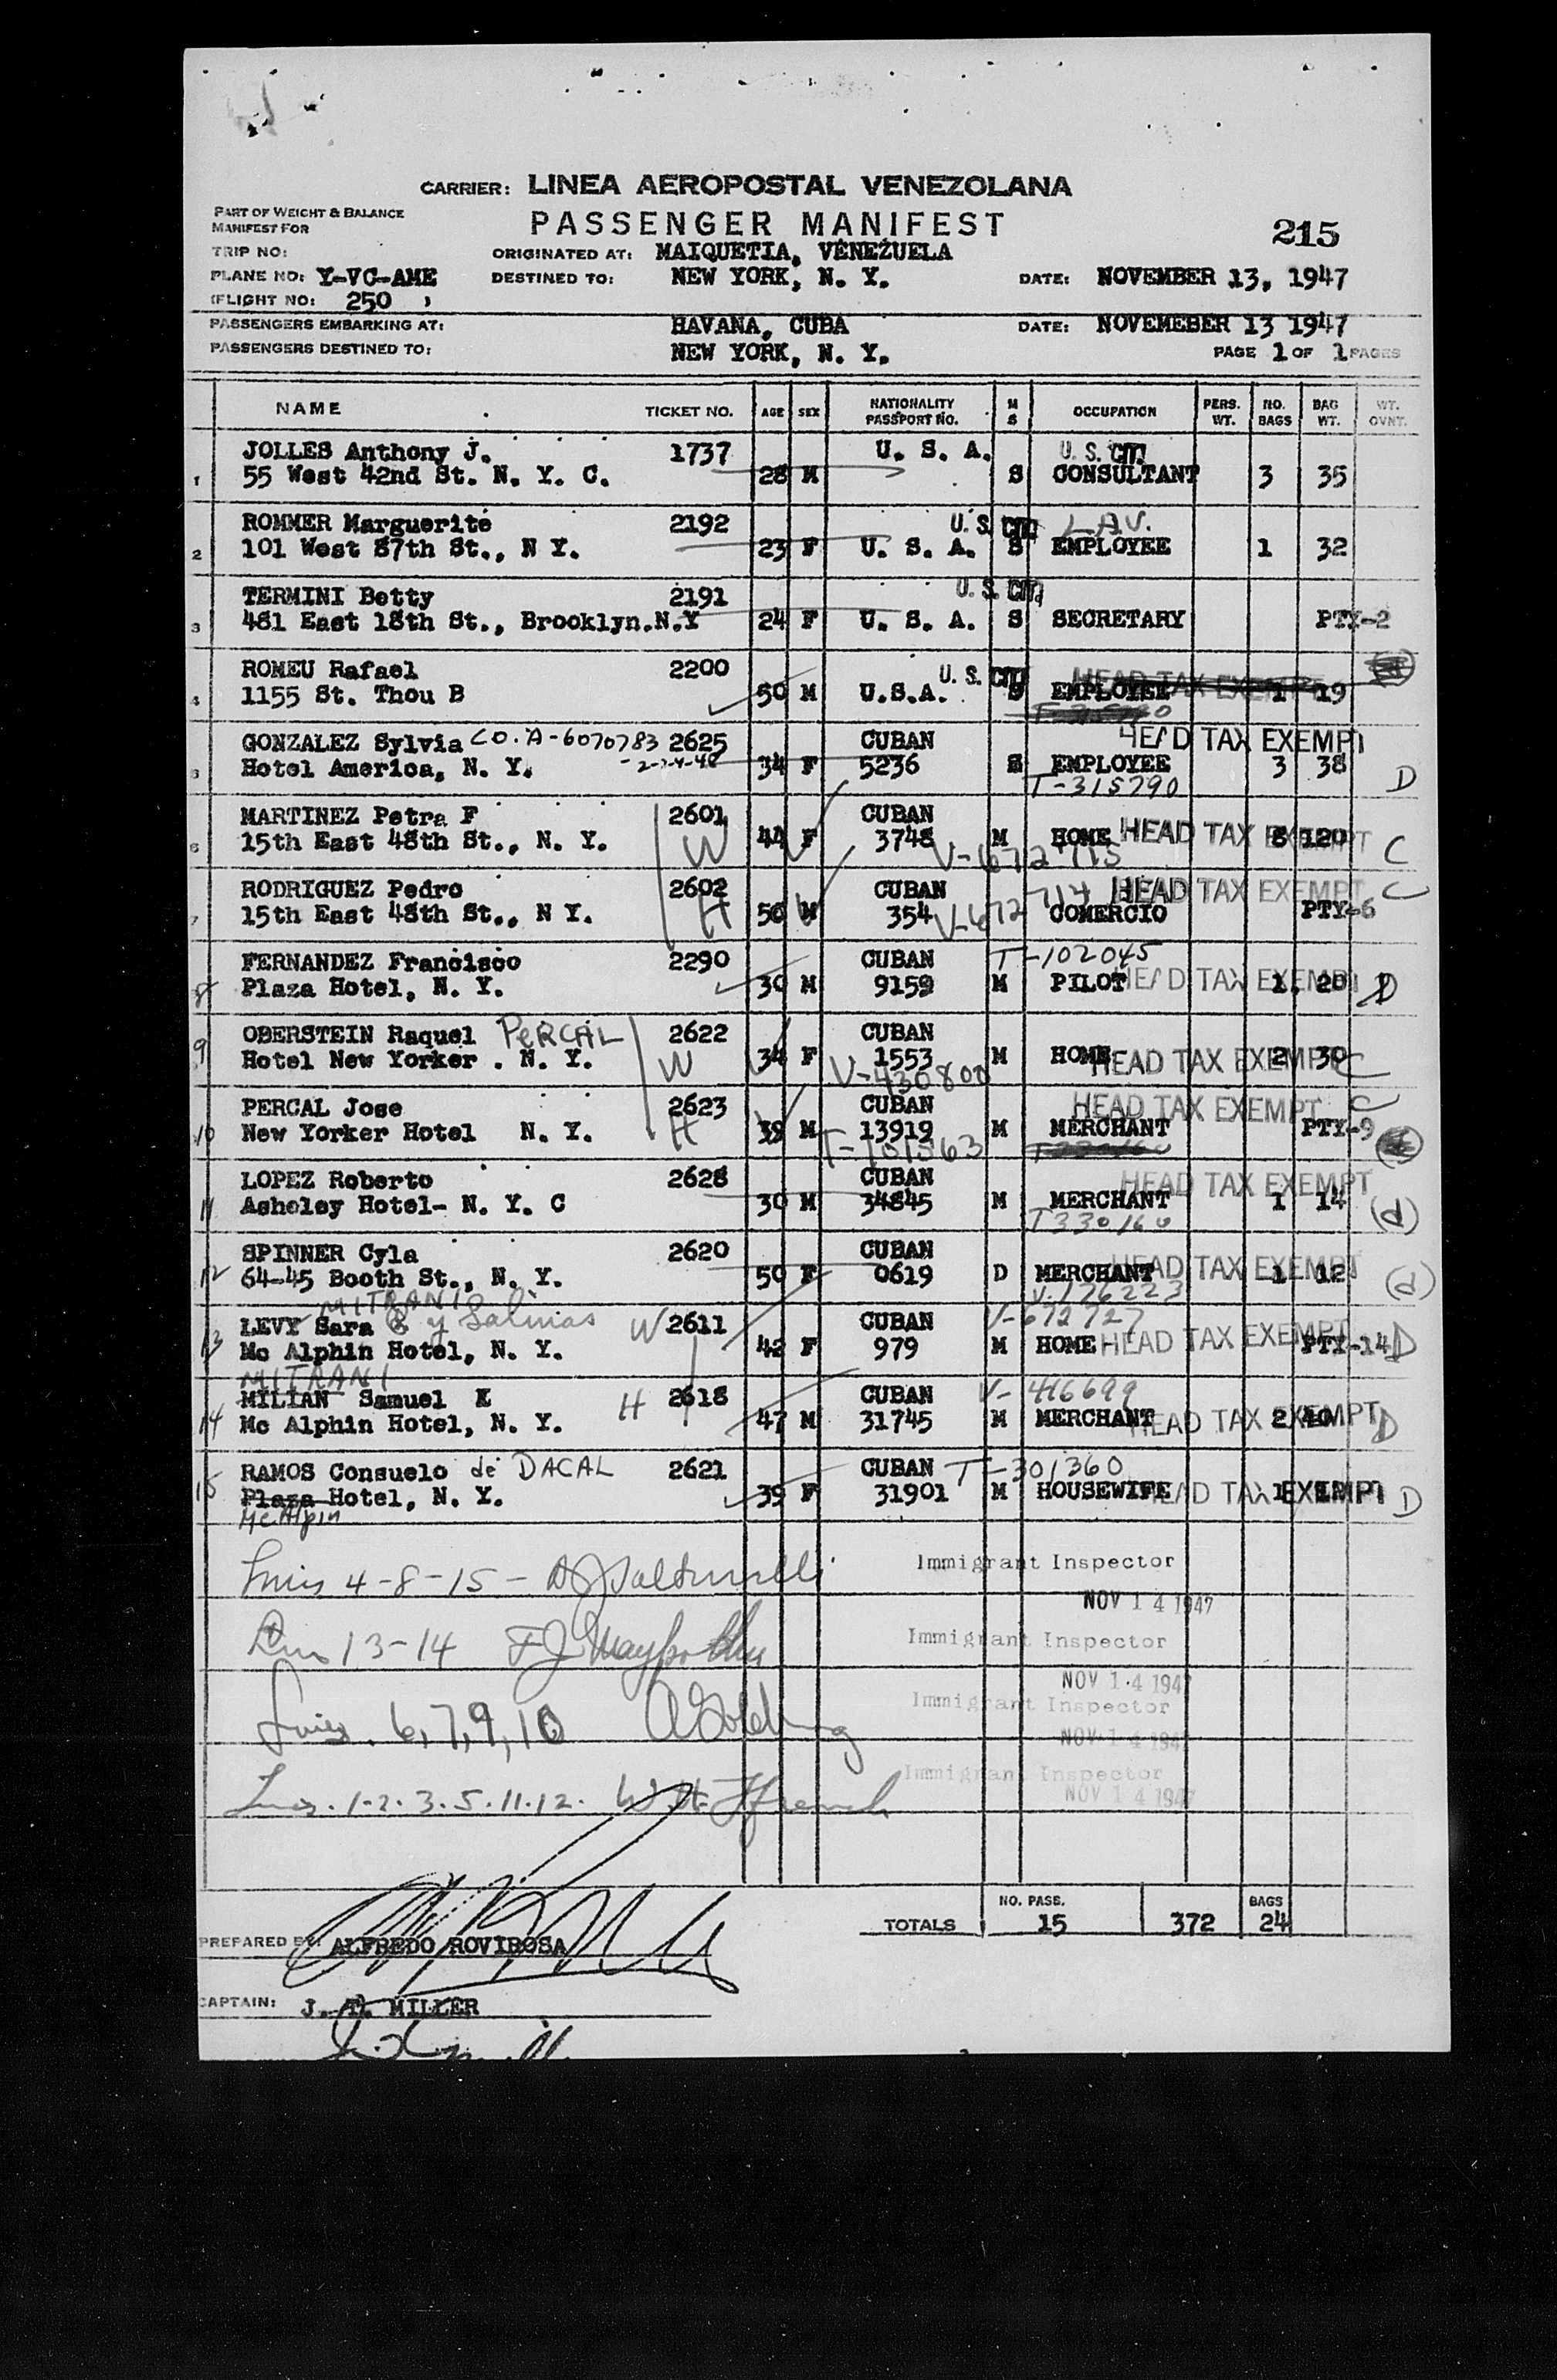 CARRIER: LINEA AEROPOSTAL VENEZOLANA
PART OF WEIGHT & BALANCE
MANIFEST FOR
PASSENGER MANIFEST
215
TRIP NO:
ORIGINATED AT: MAIQUETIA, VENEZUELA
PLANE NO: Y-VC-AME DESTINED TO: NEW YORK, N. Y. DATE: NOVEMBER 13, 1947
(FLIGHT NO: 250 )
PASSENGERS EMBARKING AT: HAVANA, CUBA DATE: NOVEMEBER 13 1947
PASSENGERS DESTINED TO: NEW YORK, N. Y. PAGE 1 OF 1 PAGES
NAME TICKET NO. AGE SEX NATIONALITY PASSPORT NO. M S OCCUPATION PERS. WT. NO. BAGS BAG WT. WT. OVNT.
JOLLES Anthony J. 1737 U. S. A. U. S. CIT.
1 55 West 42nd St. N. Y. C. 28 M S CONSULTANT 3 35
ROMMER Marguerite 2192 U. S. CIT. LAV.
2 101 West 87th St., N Y. 23 F U. S. A. S EMPLOYEE 1 32
TERMINI Betty 2191 U. S. CIT.
3 481 East 18th St., Brooklyn.N.Y 24 F U. S. A. S SECRETARY PTY-2
ROMEU Rafael 2200 U. S. CIT. HEAD TAX EXEMPT
4 1155 St. Thou B 50 M U.S.A. S EMPLOYEE 1 19
GONZALEZ Sylvia CO. A-6070783 2625 CUBAN HEAD TAX EXEMPT
5 Hotel America, N. Y. 34 F 5236 S EMPLOYEE 3 38 D
T-315790
MARTINEZ Petra F 2601 CUBAN
6 15th East 48th St., N. Y. W 44 F 3748 M HOME HEAD TAX EXEMPT 8 120 C
V-672715
RODRIGUEZ Pedro 2602 CUBAN HEAD TAX EXEMPT C
7 15th East 48th St., N Y. H 50 M 354 V-672714 COMERCIO PTY-6
FERNANDEZ Francisco 2290 CUBAN T-102045
8 Plaza Hotel, N. Y. 30 M 9159 M PILOT HEAD TAX EXEMPT 1 20 D
OBERSTEIN Raquel PERCAL 2622 CUBAN
9 Hotel New Yorker . N. Y. W 34 F 1553 M HOME HEAD TAX EXEMPT 2 30 C
V-430800
PERCAL Jose 2623 CUBAN HEAD TAX EXEMPT C
10 New Yorker Hotel N. Y. H 39 M 13919 M MERCHANT PTY-9
T-101563
LOPEZ Roberto 2628 CUBAN HEAD TAX EXEMPT
11 Asheley Hotel- N. Y. C 30 M 34845 M MERCHANT 1 14 (d)
T330160
SPINNER Cyla 2620 CUBAN
12 64-45 Booth St., N. Y. 50 F 0619 D MERCHANT HEAD TAX EXEMPT 1 12 (d)
V-176223
MITRANI
LEVY Sara y Salinas W 2611 CUBAN V-672727
13 Mc Alphin Hotel, N. Y. 42 F 979 M HOME HEAD TAX EXEMPT PTY-14 D
MITRANI
MILIAN Samuel E H 2618 CUBAN V-416699
14 Mc Alphin Hotel, N. Y. 47 M 31745 M MERCHANT HEAD TAX EXEMPT 2 40 D
RAMOS Consuelo de DACAL 2621 CUBAN T-301360
15 Plaza Hotel, N. Y. 39 F 31901 M HOUSEWIFE HEAD TAX EXEMPT 1 D
McAlpin
Lines 4-8-15 - Immigrant Inspector
NOV 14 1947
13-14 Immigrant Inspector
NOV 14 1947
Lines. 6,7,9,10 Immigrant Inspector
NOV 14 1947
Lines. 1-2.3.5.11.12. Immigrant Inspector
NOV 14 1947
TOTALS NO. PASS. 15 372 BAGS 24
PREPARED BY: ALFREDO ROVIROSA
CAPTAIN: J. T. MILLER